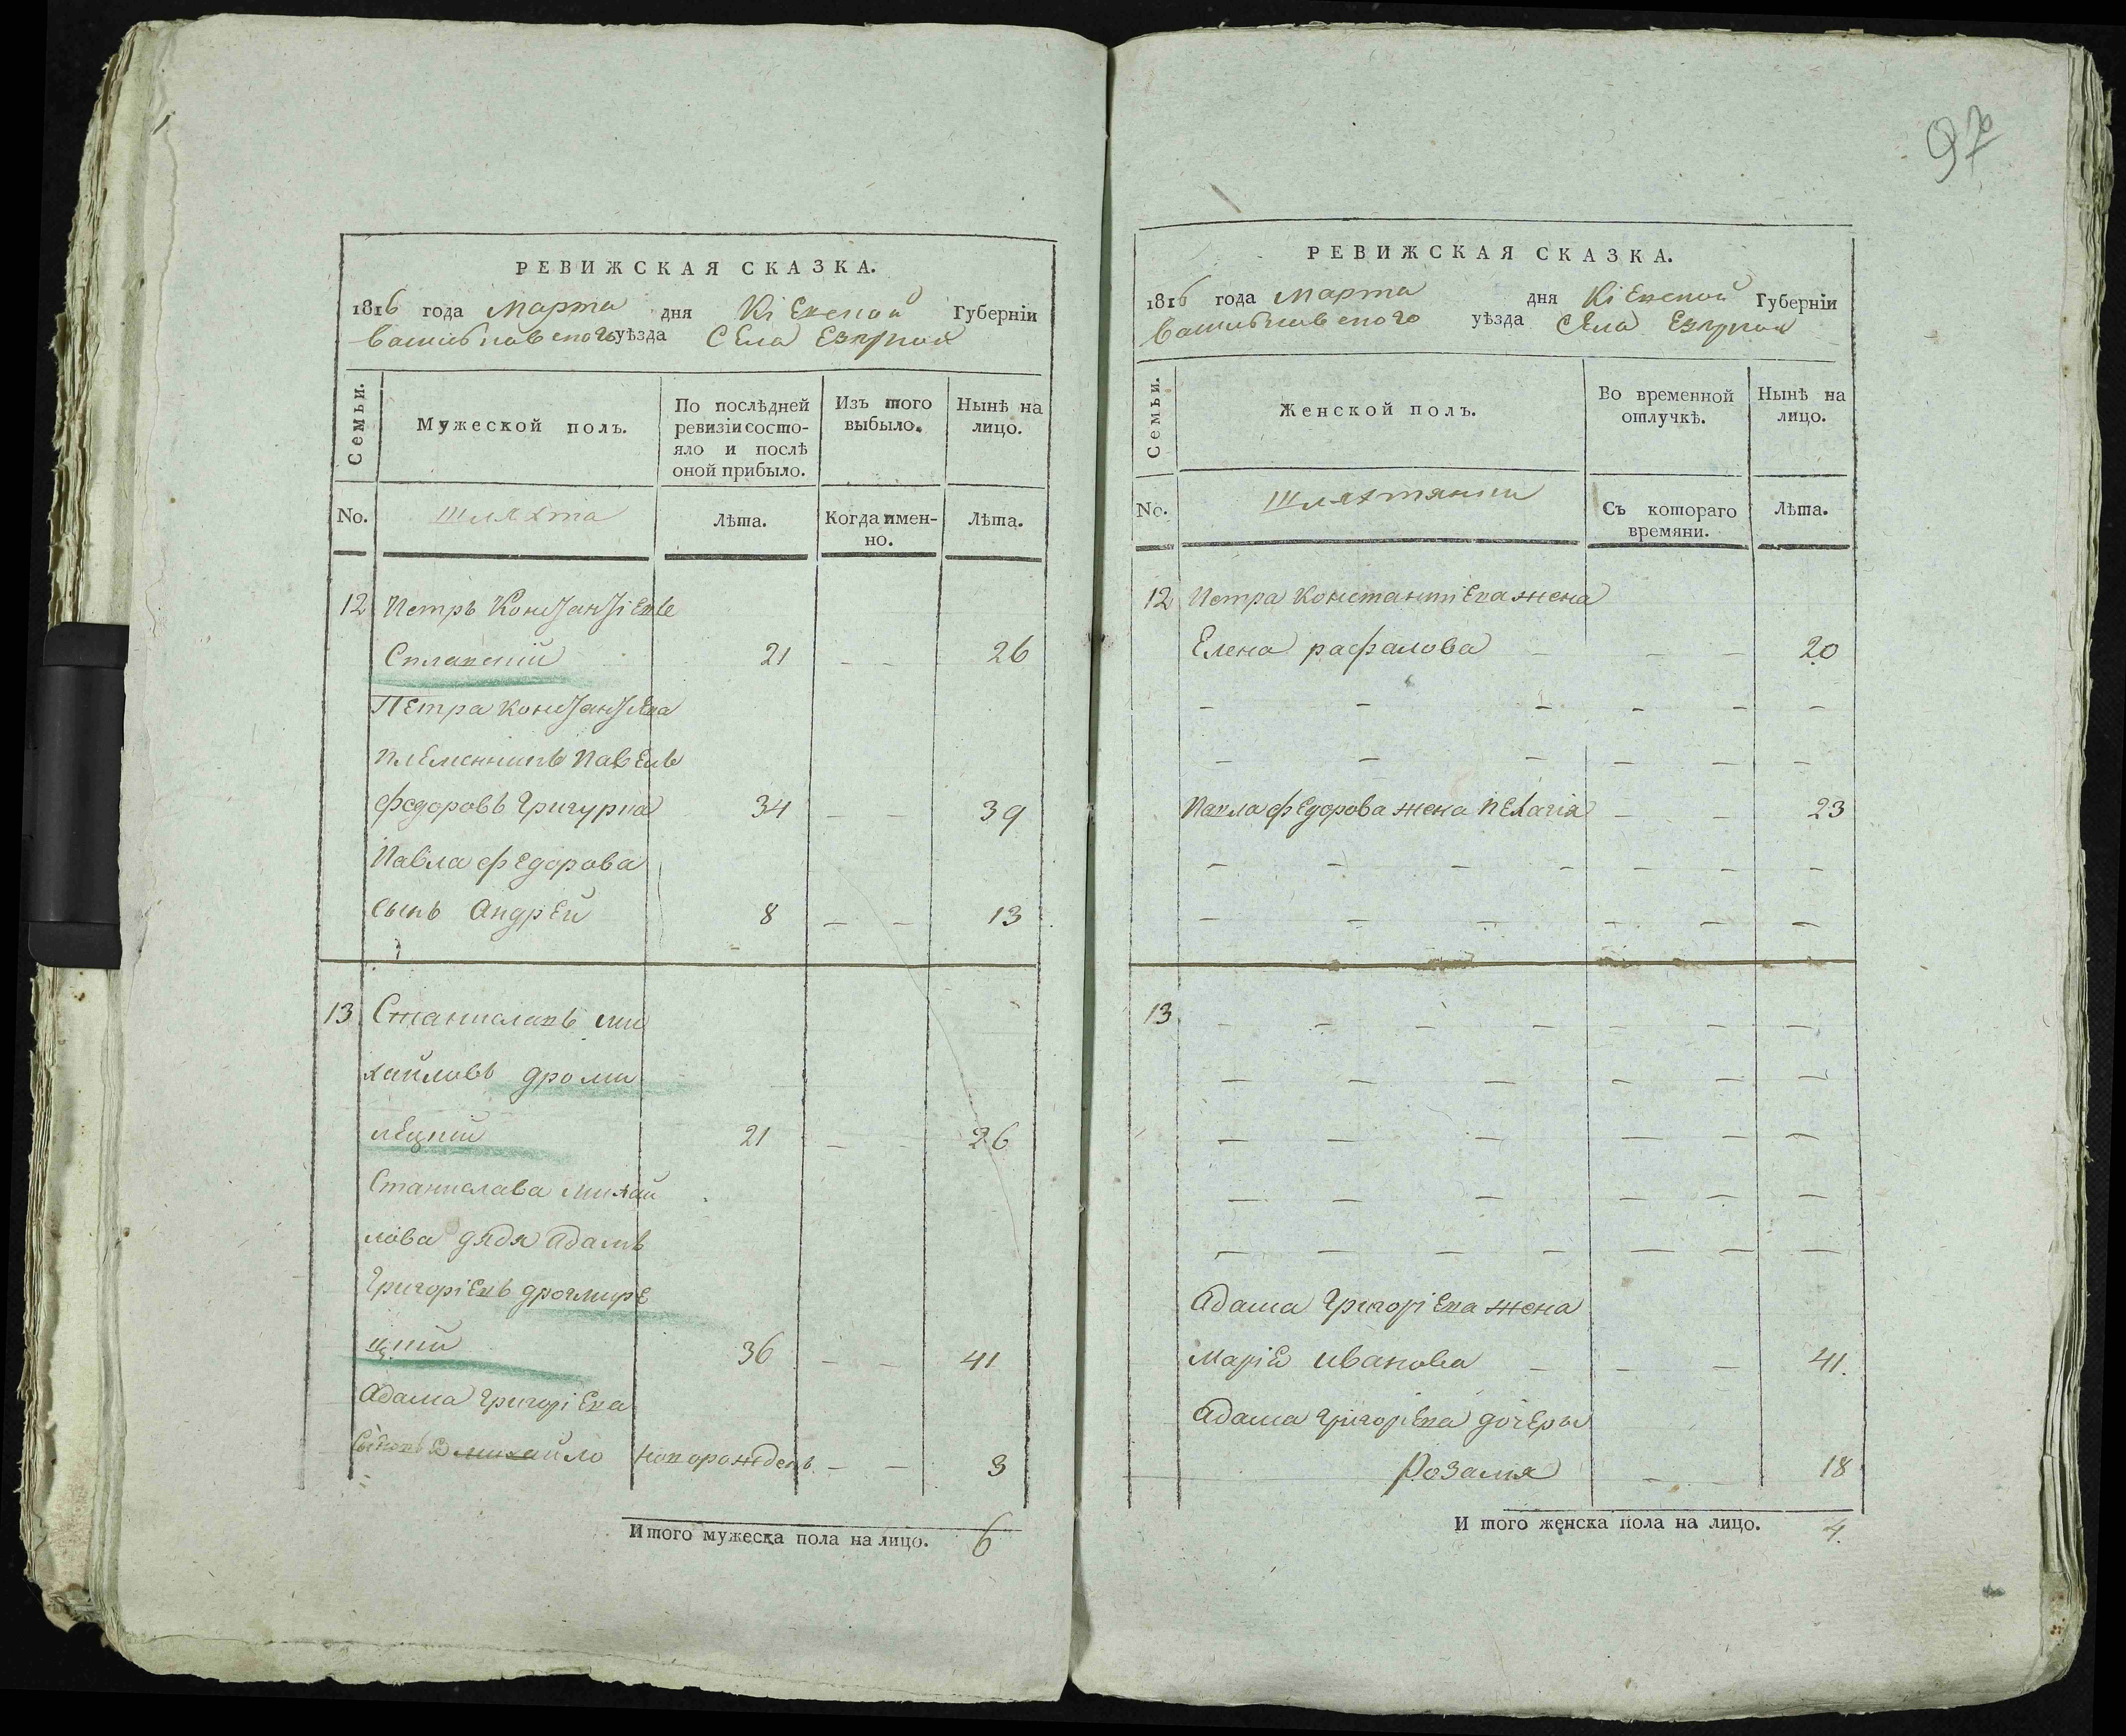 970
РЕВИЖСКАЯ СКАЗКА.
1816 года Марта дня Кіевской Губерніи
Васильковского уѣзда Села Езерной
Семьи.
Мужеской полъ.
По послѣдней ревизіи состояло и послѣ оной прибыло.
Изъ того выбыло.
Нынѣ на лицо.
No.
Шляхта
Лѣта.
Когда имен-
но.
Лѣта.
12 Петръ Константіевъ
Сплавскій 21 — — 26
Петра Константіева
племенникъ Павелъ
федоровъ Григурка 34 — — 39
Павла федорова
сынъ Андрей 8 — — 13
13 Станиславъ Ми
хайловъ дроми
лецкій 21 — — 26
Станислава Михай
лова дядя Адамъ
Григоріевъ дромире
цкій 36 — — 41
Адама Григоріева
Михайло новорожденъ — — 3
Итого мужеска пола на лицо. 6
РЕВИЖСКАЯ СКАЗКА.
1816 года Марта дня Кіевской Губерніи
Васильковского уѣзда Села Езерной
Семьи.
Женской полъ.
Во временной отлучкѣ.
Нынѣ на лицо.
No.
Шляхтянки
Съ котораго
времяни.
Лѣта.
12 Петра Константіева жена
Елена рафалова — — — 20
Павла федорова жена Пелагія — — 23
13
Адама Григоріева жена
Маріе Иванова — — — 41.
Адама григоріева дочеры
Розалія — — 18
И того женска пола на лицо. 4.